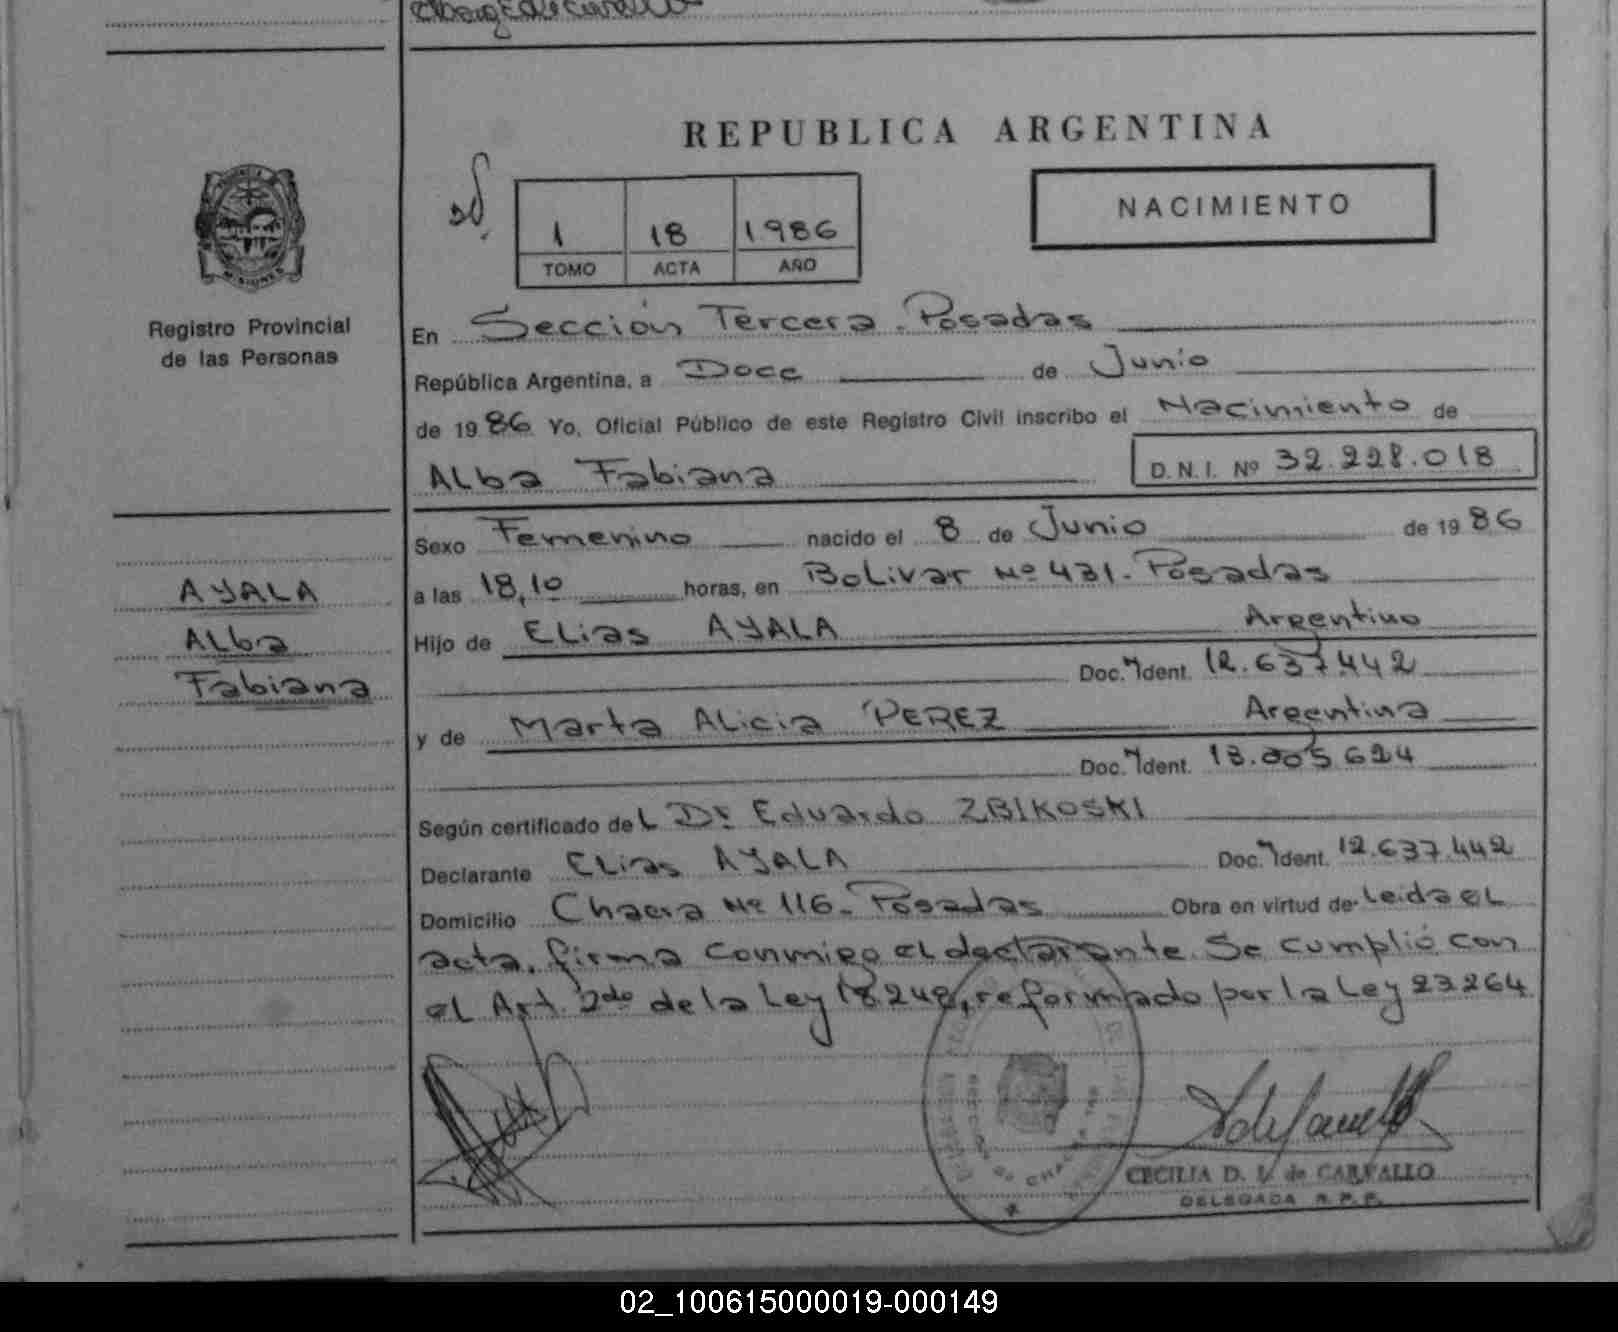 REPUBLICA ARGENTINA
NACIMIENTO
1 18 1986
TOMO ACTA AÑO
MISIONES
Registro Provincial
de las Personas
En Sección Tercera. Posadas
República Argentina, a Doce de Junio
de 1986 Yo, Oficial Público de este Registro Civil inscribo el Nacimiento de
Alba Fabiana D.N.I. Nº 32.228.018
Sexo Femenino nacido el 8 de Junio de 1986
a las 18,10 horas, en Bolivar Nº 431. Posadas
AYALA
Alba
Fabiana
Hijo de Elias AYALA Argentino
Doc. Ident. 12.637.442
y de Marta Alicia PEREZ Argentina
Doc. Ident. 13.005.624
Según certificado del Dr Eduardo ZBIKOSKI
Declarante Elias AYALA Doc. Ident. 12.637.442
Domicilio Chacra Nº 116. Posadas Obra en virtud de Leida el
acta, firma conmigo el declarante. Se cumplió con
el Art. 2do de la Ley 18.248, reformado por la Ley 23264
CECILIA D. L. de CARVALLO
DELEGADA R.P.P.
02_100615000019-000149